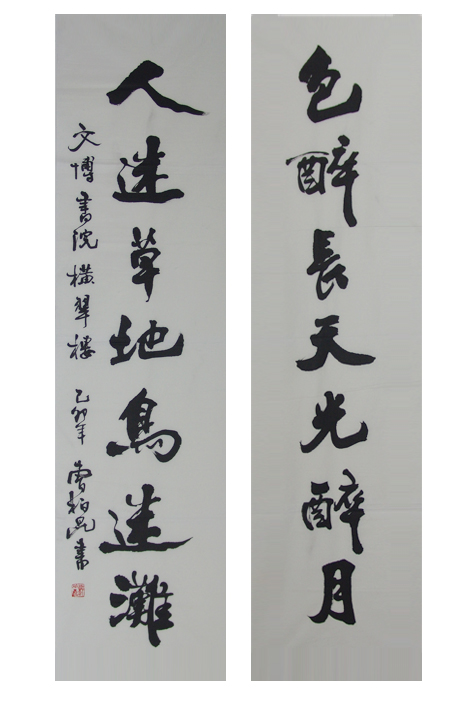 色醉長天光醉月
人迷草地鳥迷灘
文博書院橫翠樓 己卯年 曾柏昆書